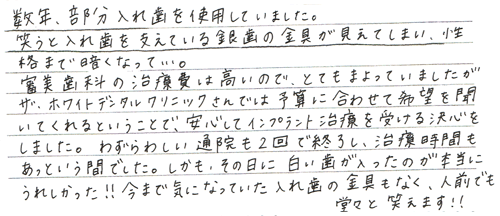 数年、部分入れ歯を使用していました。
笑うと入れ歯を支えている銀歯の金具が見えてしまい、性
格まで暗くなって…。
審美歯科の治療費は高いので、とてもまよっていましたが
ザ・ホワイトデンタルクリニックさんでは予算に合わせて希望を聞
いてくれるということで、安心してインプラント治療を受ける決心を
しました。わずらわしい通院も2回で終了し、治療時間も
あっという間でした。しかも、その日に白い歯が入ったのが本当に
うれしかった!!今まで気になっていた入れ歯の金具もなく、人前でも
堂々と笑えます!!